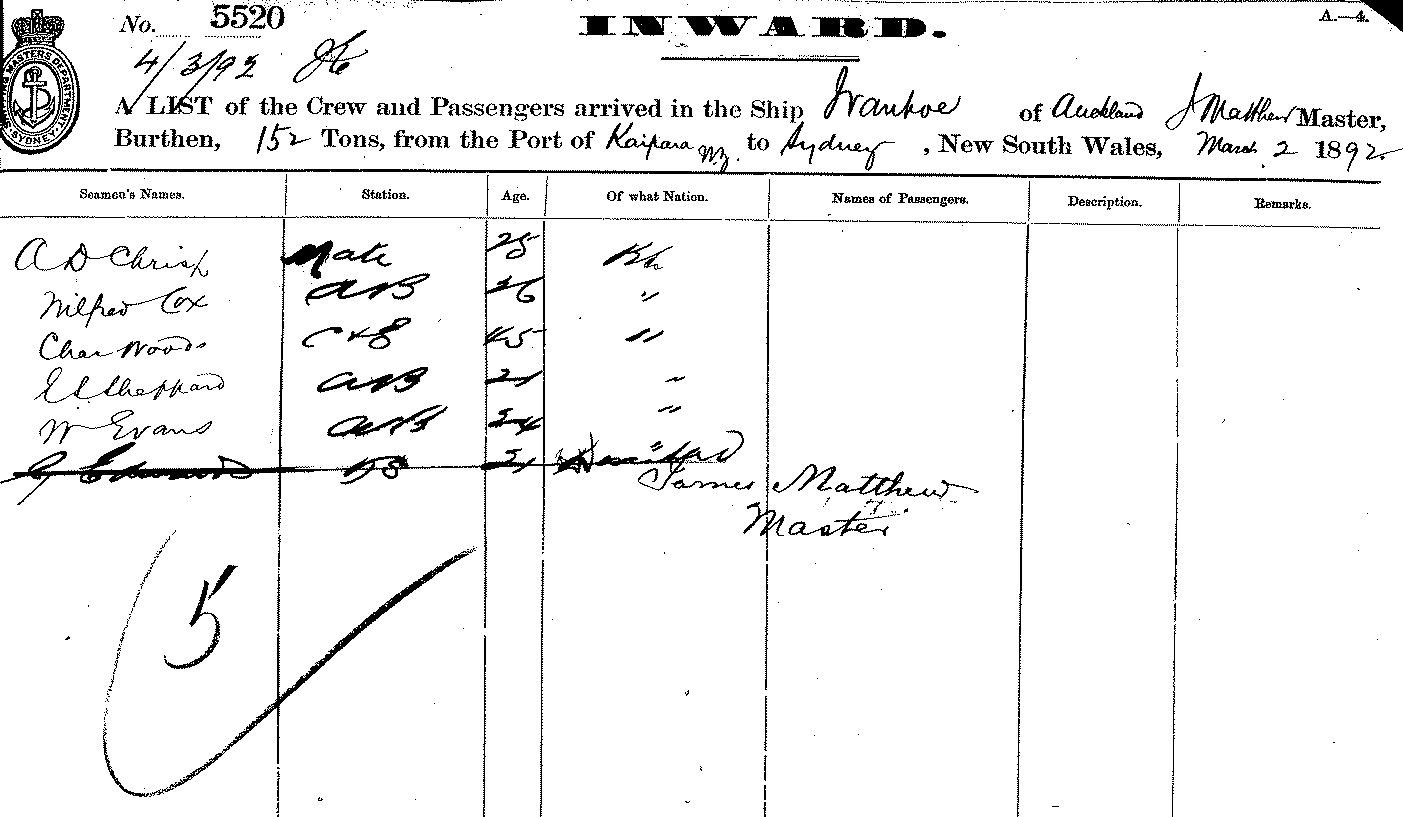 No. 5520 INWARD. A.—4.
4/3/92
A LIST of the Crew and Passengers arrived in the Ship Ivanhoe of Auckland J Matthew Master,
Burthen, 152 Tons, from the Port of Kaipara NZ. to Sydney, New South Wales, March 2 1892
SYDNEY
Seamen's Names. Station. Age. Of what Nation. Names of Passengers. Description. Remarks.
A D Chrisp Mate 28
Wilfred Cox AB 26 "
Chas Woods C & S 45 "
E S Sheppard AB 21 "
W Evans AB 24 "
Edwards OS 21 "
James Matthew
Master
5